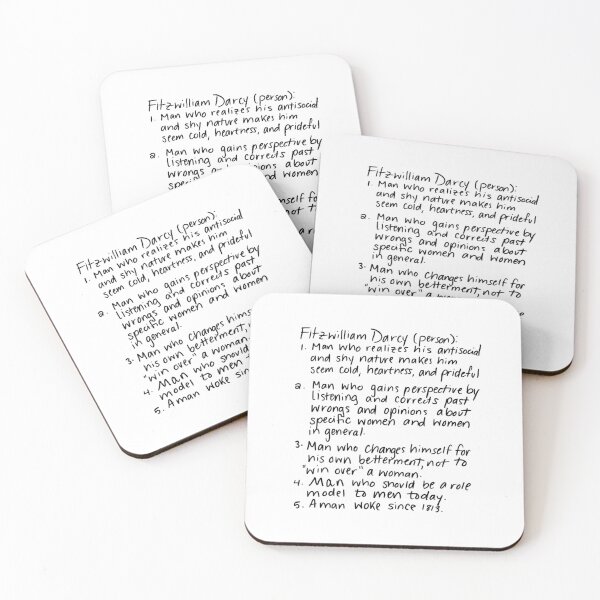 Fitzwilliam Darcy (person):
1. Man who realizes his antisocial
and shy nature makes him
seem cold, heartness, and prideful
2. Man who gains perspective by
listening and corrects past
wrongs and opinions about
and women
for
not to
Fitzwilliam Darcy (person):
1. Man who realizes his antisocial
and shy nature makes him
seem cold, heartness, and prideful
2. Man who gains perspective by
listening and corrects past
wrongs and opinions about
specific women and women
in general.
3. Man who changes himself for
his own betterment, not to
"win over" a woman.
Fitzwilliam Darcy (person):
1. Man who realizes his antisocial
and shy nature makes him
seem cold, heartness, and prideful
2. Man who gains perspective by
listening and corrects past
wrongs and opinions about
specific women and women
in general.
3. Man who changes himself
his own betterment,
"win over" a woman.
4. Man who should
model to men
5. A man woke since
Fitzwilliam Darcy (person):
1. Man who realizes his antisocial
and shy nature makes him
seem cold, heartness, and prideful
2. Man who gains perspective by
listening and corrects past
wrongs and opinions about
specific women and women
in general.
3. Man who changes himself for
his own betterment, not to
"win over" a woman.
4. Man who should be a role
model to men today.
5. A man woke since 1813.